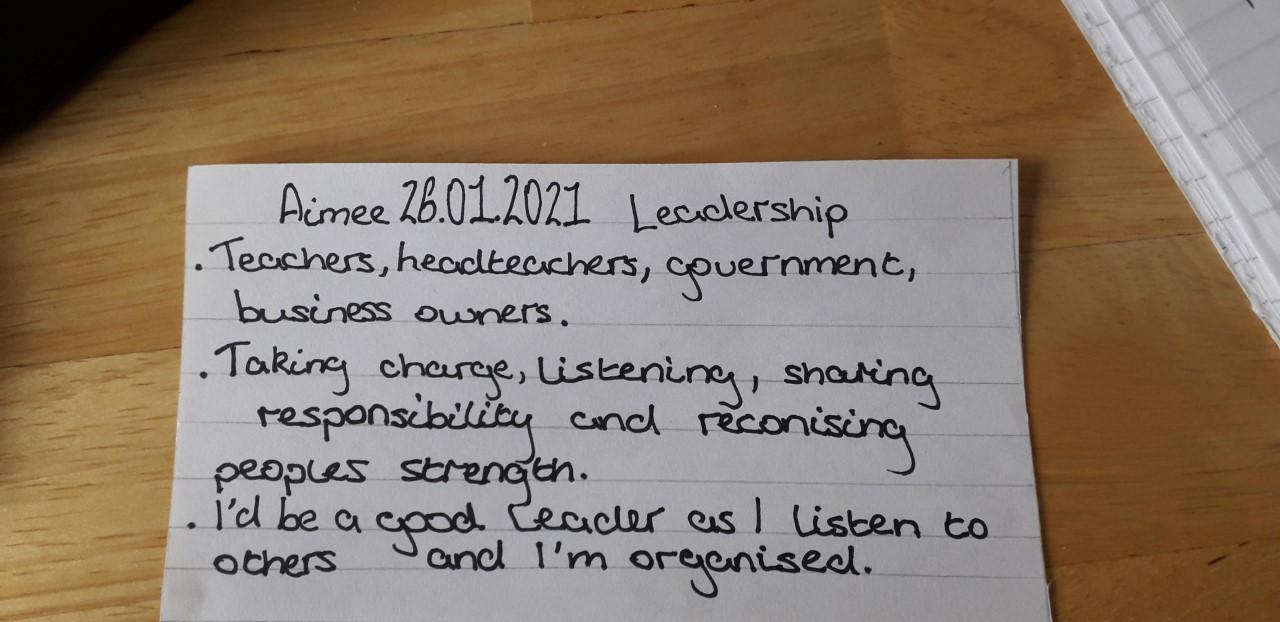 Aimee 26.01.2021 Leadership
. Teachers, headteachers, government,
business owners.
. Taking charge, listening, sharing
responsibility and reconising
peoples strength.
. I'd be a good leader as I listen to
others and I'm organised.